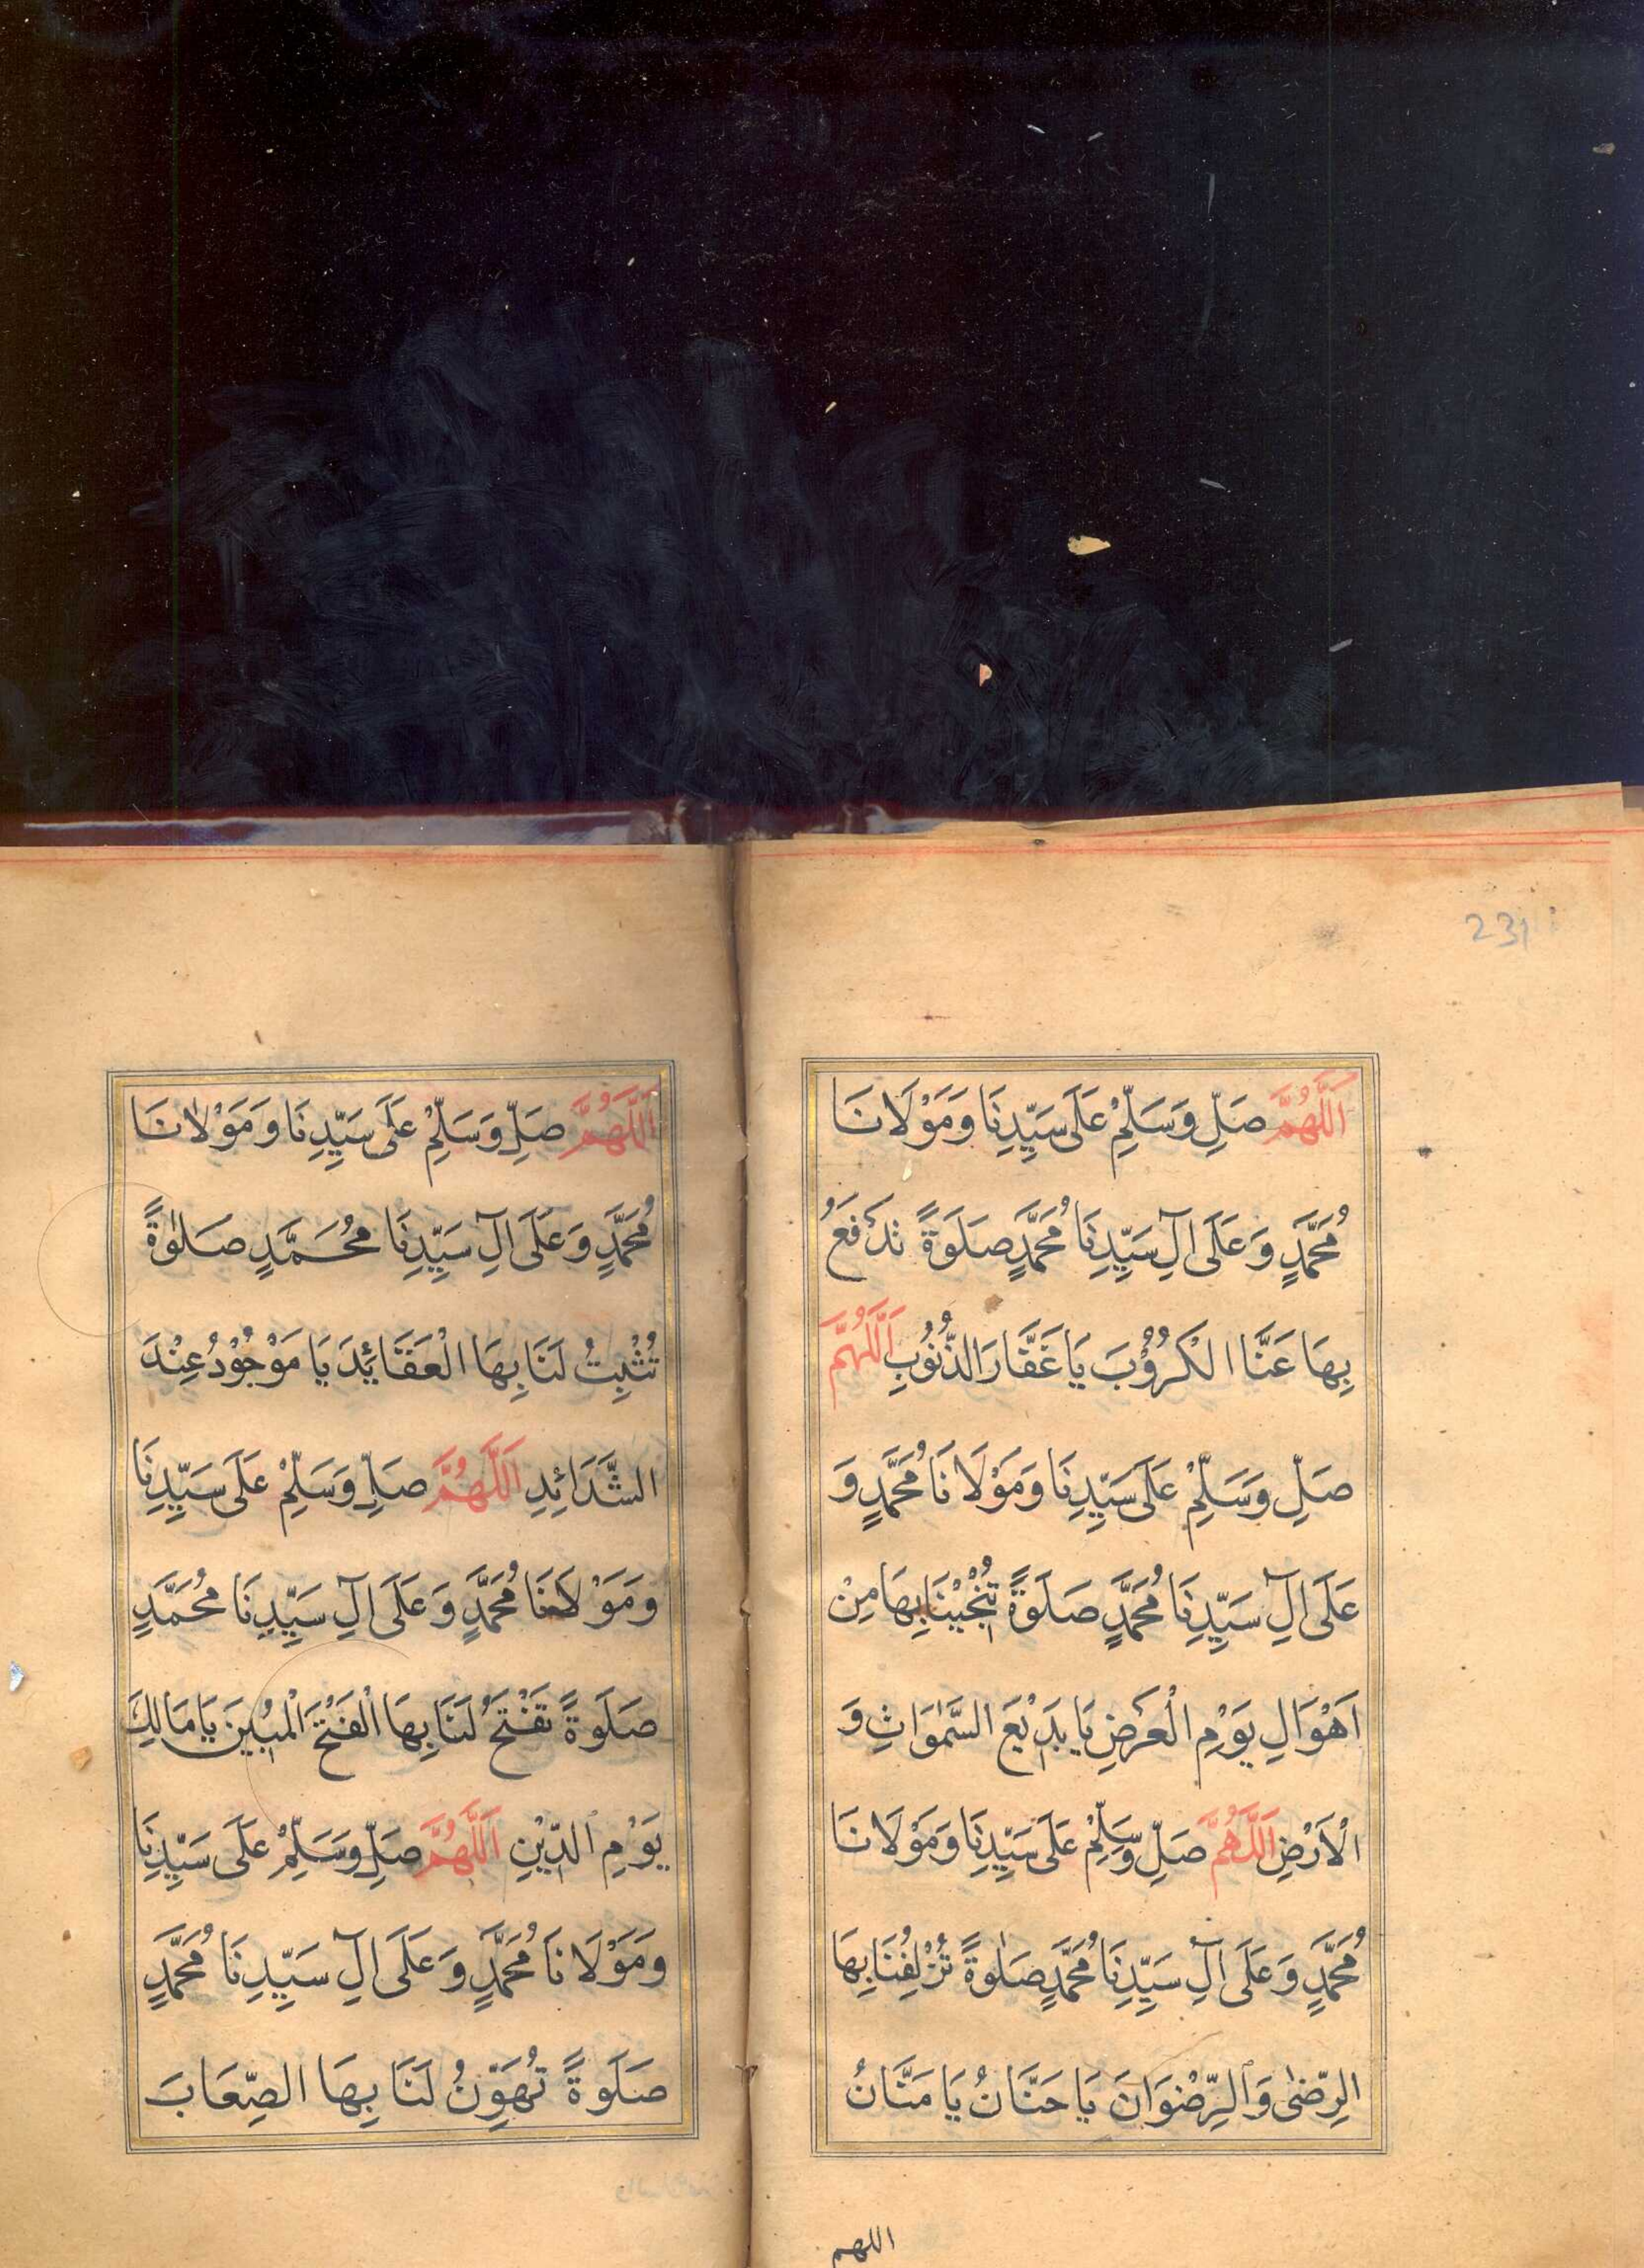 231
اَللّٰهُمَّ صَلِّ وَسَلِّمْ عَلَى سَيِّدِنَا وَمَوْلَانَا
مُحَمَّدٍ وَعَلَى اٰلِ سَيِّدِنَا مُحَمَّدٍ صَلَوةً تَدْفَعُ
بِهَا عَنَّا الْكُرُوْبَ يَا غَفَّارَ الذُّنُوْبِ اَللّٰهُمَّ
صَلِّ وَسَلِّمْ عَلَى سَيِّدِنَا وَمَوْلَانَا مُحَمَّدٍ وَ
عَلَى اٰلِ سَيِّدِنَا مُحَمَّدٍ صَلَوةً تُنْجِيْنَا بِهَا مِنْ
اَهْوَالِ يَوْمِ الْعَرَضِ يَا بَدِيْعَ السَّمٰوَاتِ وَ
الْاَرْضِ اَللّٰهُمَّ صَلِّ وَسَلِّمْ عَلَى سَيِّدِنَا وَمَوْلَانَا
مُحَمَّدٍ وَعَلَى اٰلِ سَيِّدِنَا مُحَمَّدٍ صَلٰوةً تُزْلِفُنَا بِهَا
الرِّضٰى وَالرِّضْوَانَ يَا حَنَّانُ يَا مَنَّانُ
اللهم
اَللّٰهُمَّ صَلِّ وَسَلِّمْ عَلَى سَيِّدِنَا وَمَوْلَانَا
مُحَمَّدٍ وَعَلَى اٰلِ سَيِّدِنَا مُحَمَّدٍ صَلٰوةً
تُثْبِتُ لَنَا بِهَا الْعَقَائِدَ يَا مَوْجُوْدُ عِنْدَ
الشَّدَائِدِ اَللّٰهُمَّ صَلِّ وَسَلِّمْ عَلَى سَيِّدِنَا
وَمَوْلَانَا مُحَمَّدٍ وَعَلَى اٰلِ سَيِّدِنَا مُحَمَّدٍ
صَلَوةً تَفْتَحُ لَنَا بِهَا الْفَتْحَ الْمُبِيْنَ يَا مَالِكَ
يَوْمِ الدِّيْنِ اَللّٰهُمَّ صَلِّ وَسَلِّمْ عَلَى سَيِّدِنَا
وَمَوْلَانَا مُحَمَّدٍ وَعَلَى اٰلِ سَيِّدِنَا مُحَمَّدٍ
صَلَوةً تُهَوِّنُ لَنَا بِهَا الصِّعَابَ